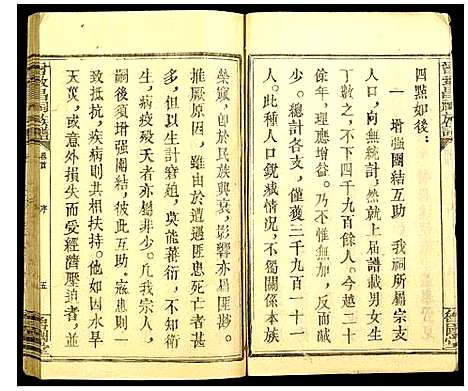 四點如後：
一　增强團結互助　我祠所屬宗支
人口，向無統計，然就上屆譜載男女生
丁數之，不下四千九百餘人。今越二十
餘年，理應增益。乃不惟無增，反而減
此。總計各支，僅獲三千九百一十二
人。此種人口銳減情况，不獨關係本族
榮寢，卽於民族興衰，影響亦屬匪尠。
推厥原因，雖由於遭遇匪患死亡者甚
多，但以生計窘廹，莫能蕃衍，不一補
生，病疫殁天者亦屬非少。凡我宗人，
嗣後須增强團結，彼此互助，寇患則一
致抵抗，疾病則共相扶持。他如因水旱
天災，或意外損失而受經濟壓迫者，並
族譜
卷首
序
五